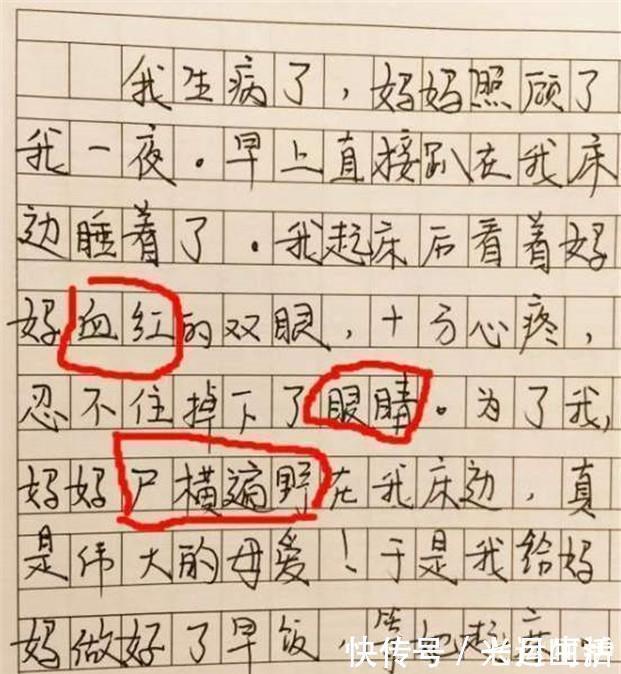 我生病了，妈妈照顾了
我一夜。早上直接趴在我床
边睡着了。我起床后看着妈
妈血红的双眼，十分心疼，
忍不住掉下了眼睛。为了我,
妈妈尸横遍野在我床边，真
是伟大的母爱！于是我给妈
妈做好了早饭，等她起床
快传号／